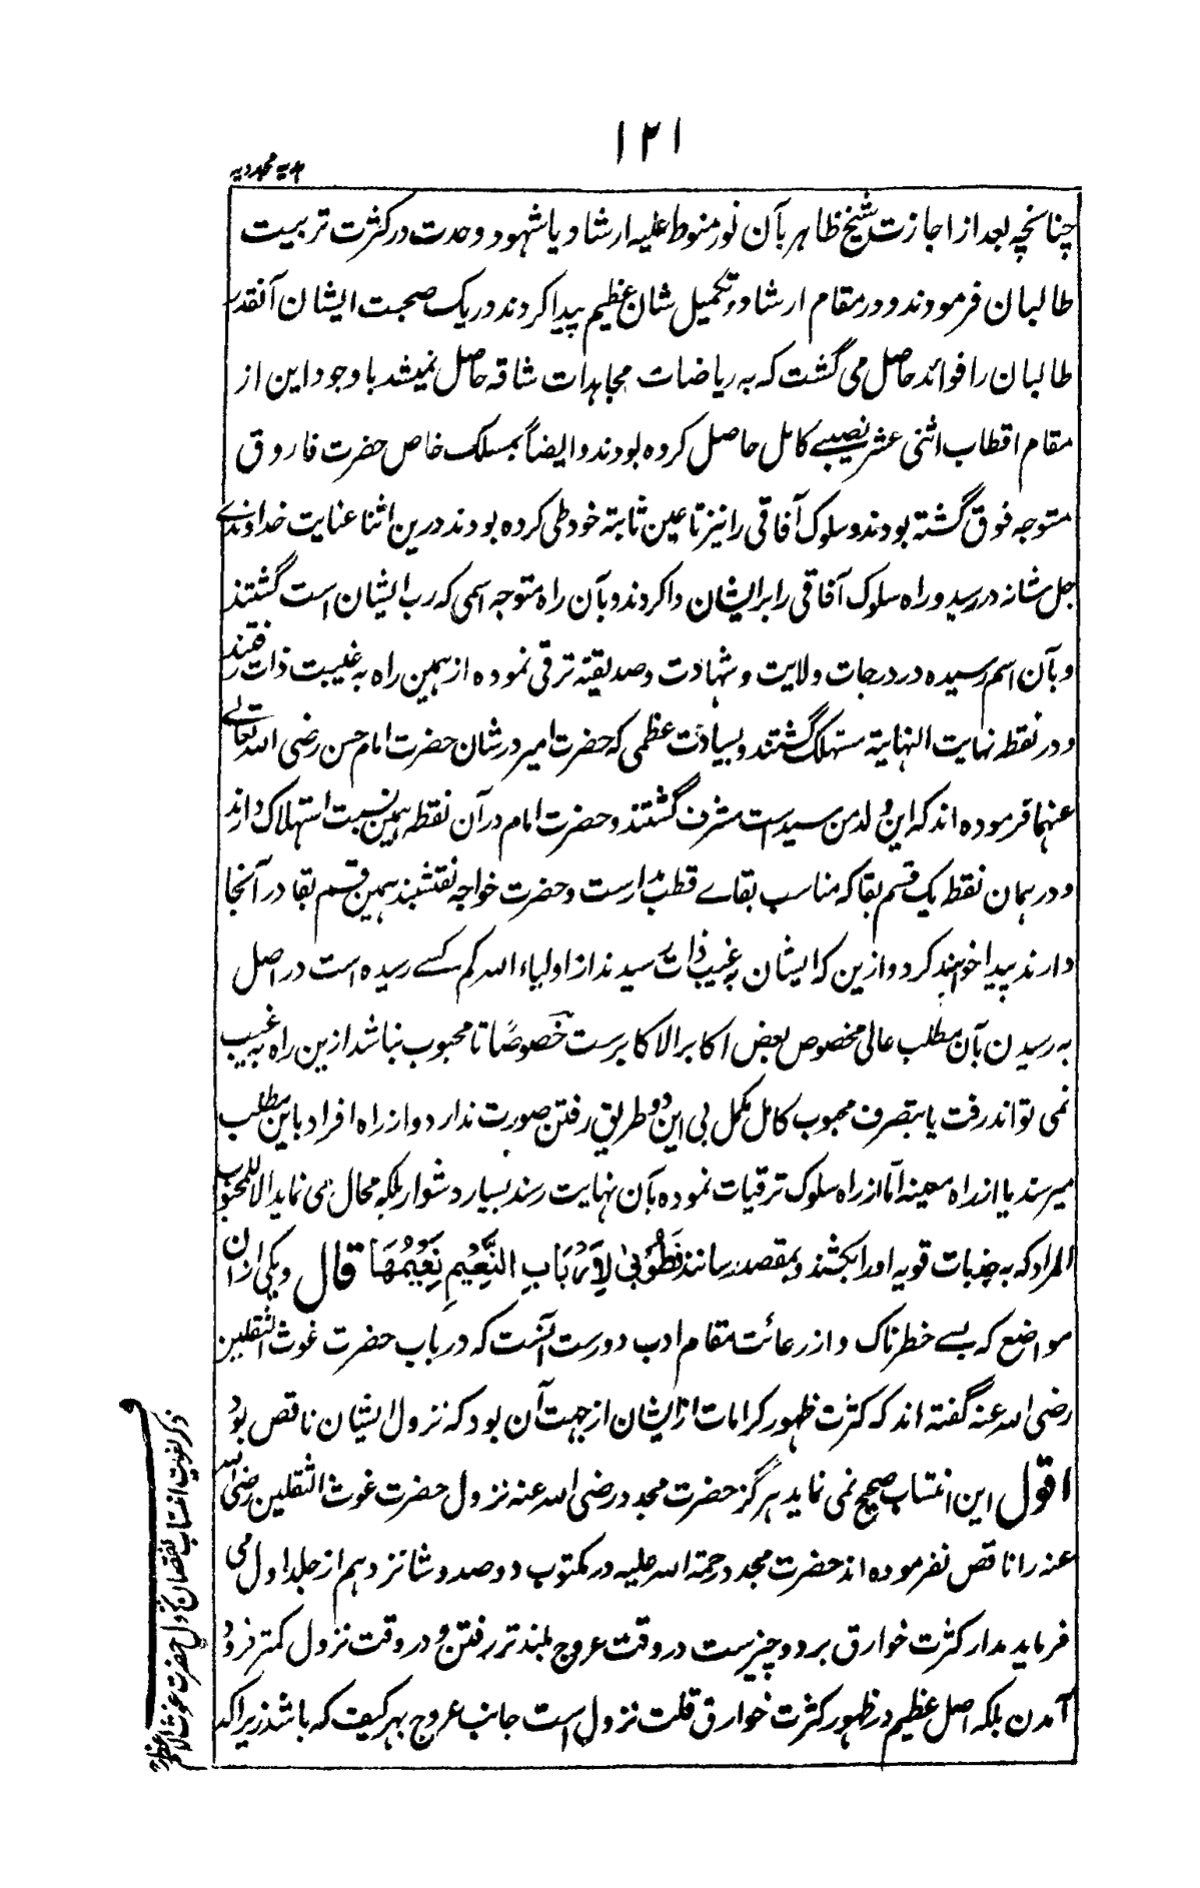 ۱۲۱
هدیه مجددیه
چنانچه بعد از اجازت شیخ ظاهر بآن نور منوط علیه ارشاد یا شهود وحدت در کثرت تربیت
طالبان فرمودند و در مقام ارشاد و تکمیل شان عظیم پیدا کردند در یک صحبت ایشان آنقدر
طالبان را فوائد حاصل می گشت که به ریاضات مجاهدات شاقه حاصل نمیشد باوجود این از
مقام اقطاب اثنی عشر نصیبے کامل حاصل کرده بودند و ایضاً بمسلک خاص حضرت فاروق
متوجه فوق گشته بودند و سلوک آفاقی را نیز تا عین ثابته خود طی کرده بودند درین اثنا عنایت خداوندے
جل شانه در رسید و راه سلوک آفاقی را برایشان وا کردند و بآن راه متوجه اسمی که رب ایشان است گشتند
و بآن اسم رسیده در درجات ولایت و شهادت و صدیقیة ترقی نموده از همین راه به غیبت ذات رفتند
و در نقطه نهایت النهایة مستهلک گشتند و بسیادت عظمی که حضرت امیر در شان حضرت امام حسن رضی الله تعالے
عنهما فرموده اند که این ولد من سید است مشرف گشتند و حضرت امام در آن نقطه همین نسبت استهلاک دارند
و در همان نقطه یک قسم بقا که مناسب بقاے قطب مدارست و حضرت خواجه نقشبند همین قسم بقا در آنجا
دارند پیدا خواهند کرد و ازین که ایشان به غیب ذات رسیدند از اولیاء الله کم کسے رسیده است در اصل
به رسیدن بآن مطلب عالی مخصوص بعض اکابر الاکابرست خصوصًا تا محبوب نباشد ازین راه به غیب
نمی تواند رفت یا بتصرف محبوب کامل مکمل بی این دو طریق رفتن صورت ندارد و از راه افراد باین مطلب
میرسند یا از راه معینه اما از راه سلوک ترقیات نموده بآن نهایت رسند بسیار دشوار بلکه محال می نماید الا للمحبوب
المراد که به جذبات قویه او را بکشند و بمقصد رسانند فَطُوْبیٰ لِاَرْبَابِ النَّعِیْمِ نَعِیْمُهَا قال و یکی از ان
مواضع که بسے خطرناک و از رعائت مقام ادب دورست آنست که در باب حضرت غوث الثقلین
رضی الله عنه گفته اند که کثرت ظهور کرامات از ایشان از جهت آن بود که نزول ایشان ناقص بود
اقول این انتساب صحیح نمی نماید هرگز حضرت مجدد رضی الله عنه نزول حضرت غوث الثقلین رضی الله
عنه را ناقص نفرموده اند حضرت مجدد رحمة الله علیه در مکتوب دو صد و شانزدهم از جلد اول می
فرماید مدار کثرت خوارق بر دو چیزست در وقت عروج بلند تر رفتن و در وقت نزول کمتر فرود
آمدن بلکه اصل عظیم در ظهور کثرت خوارق قلت نزول است جانب عروج بهر کیفت که باشد زیراکه
ذکر انتساب نقصان نزول حضرت غوث الاعظم